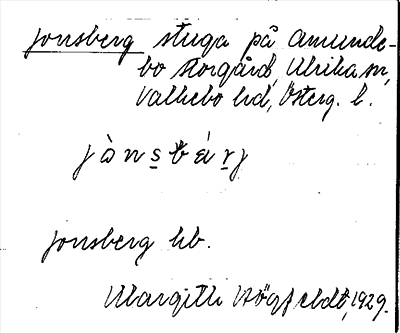 Jonsberg stuga på Amunde-
bo storgård, Ulrika sn,
Valkebo hd, Österg. l.
jònsbárj
Jonsberg hb.
Margith Högfeldt, 1929.